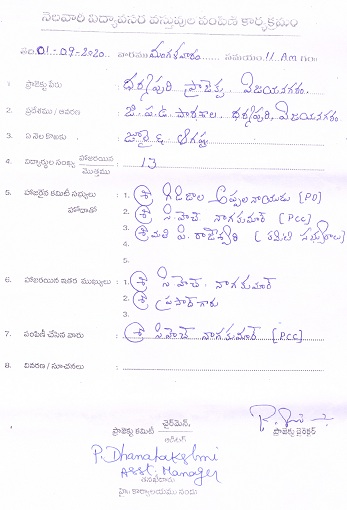 నెలవారి విద్యావసర వస్తువుల పంపిణీ కార్యక్రమం
తేది: 01-09-2020.. వారము మంగళవారం...... సమయం 11 AM గం॥
1. ప్రాజెక్టు పేరు : ధర్మపురి ప్రాజెక్టు, విజయనగరం.
2. ప్రదేశము / ఆవరణ : జి.ప.ఉ. పాఠశాల, ధర్మపురి, విజయనగరం
3. ఏ నెల కొరకు : జూలై & ఆగస్టు
4. విద్యార్థుల సంఖ్య హాజరయిన / మొత్తము : 13
5. హాజరైన కమిటీ సభ్యులు : 1. శ్రీ అప్పలనాయుడు [PO]
హోదాతో 2. శ్రీ సి.హెచ్. నాగకుమార్ [PCC]
3. శ్రీమతి పి. రాజేశ్వరి (కమిటి సభ్యురాలు)
4.
5.
6. హాజరయిన ఇతర ముఖ్యులు : 1. శ్రీ సి.హెచ్. నాగకుమార్
2. శ్రీ ప్రసాద్ గారు
3.
7. పంపిణీ చేసిన వారు : శ్రీ సి.హెచ్. నాగకుమార్ [PCC]
8. వివరణ / సూచనలు :
ప్రాజెక్టు కమిటీ ఛైర్మెన్, ప్రాజెక్టు డైరెక్టర్
P. Dhanalakshmi
Asst. Manager
హై. కార్యాలయము నందు